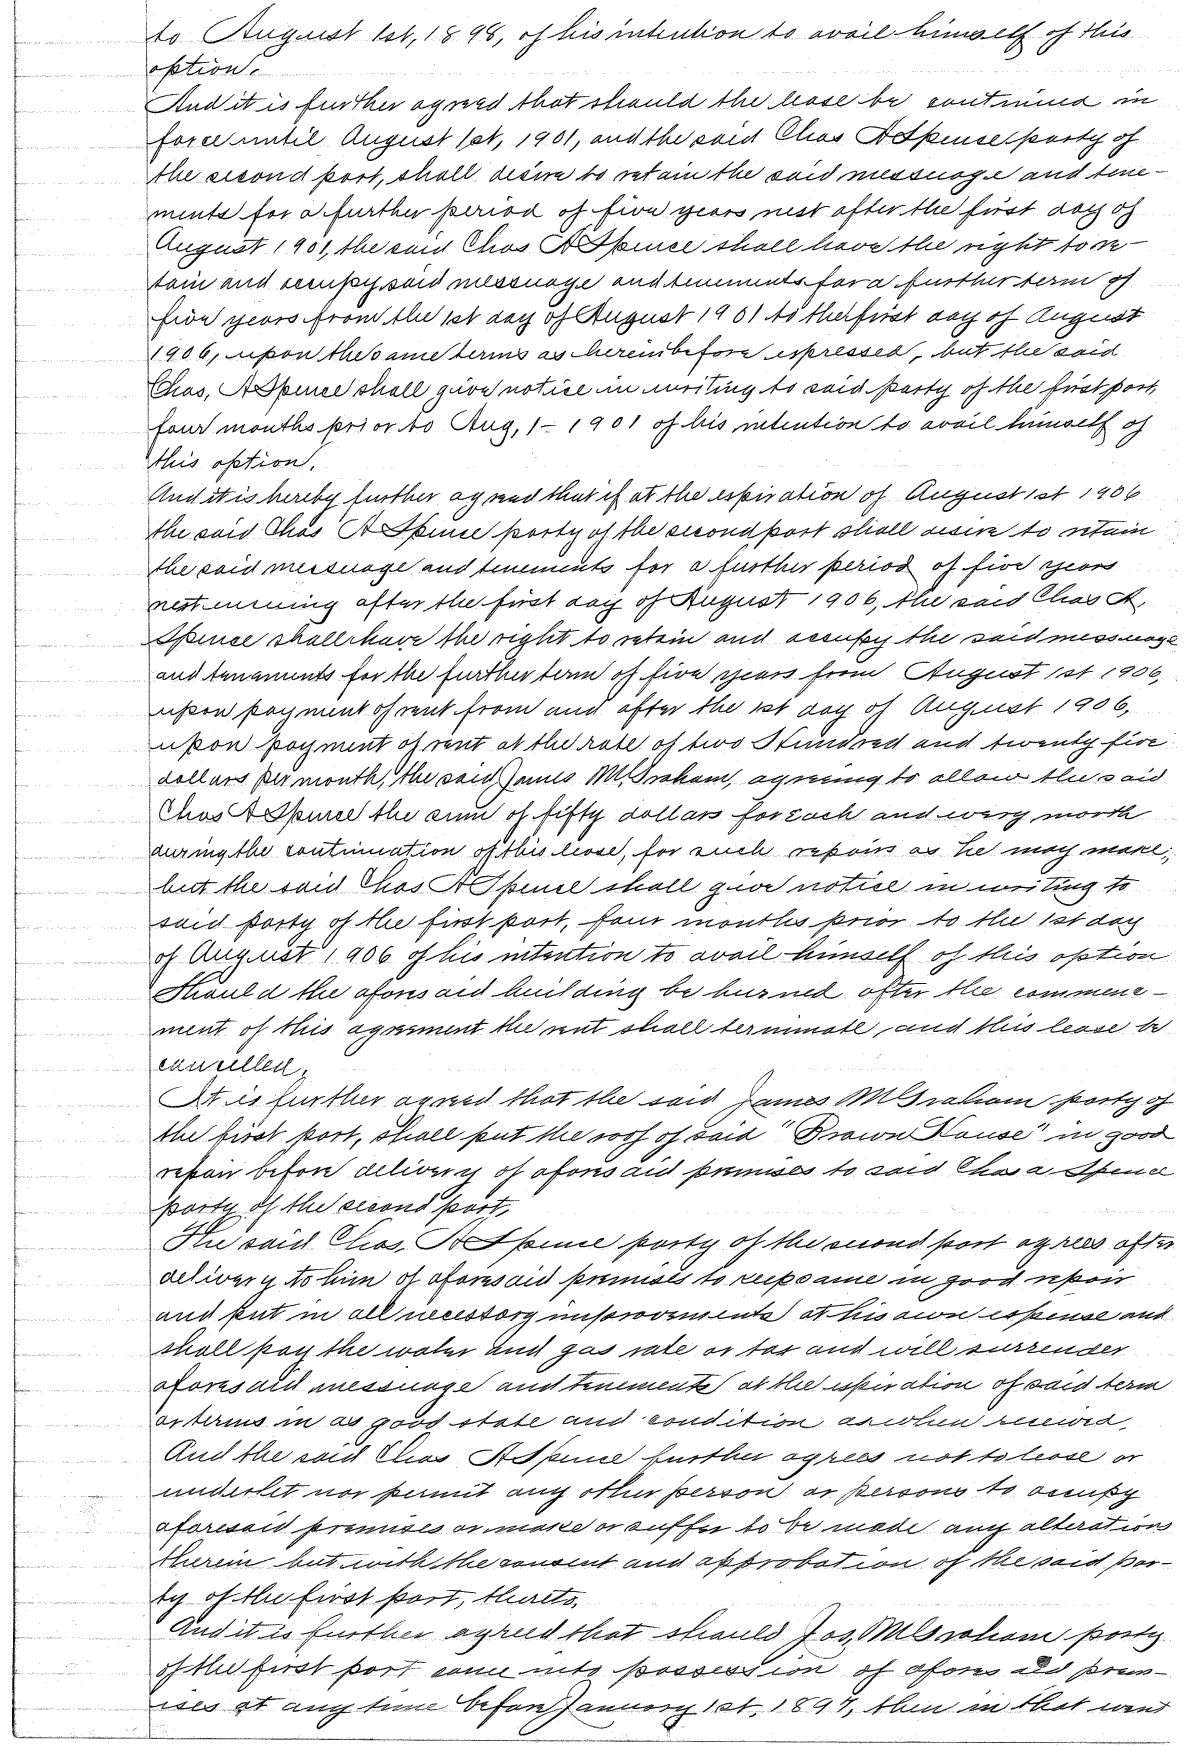 to August 1st, 1898, of his intention to avail himself of this
option.
And it is further agreed that should the lease be continued in
force until August 1st, 1901, and the said Chas A Spence party of
the second part, shall desire to retain the said messuage and tene-
ments for a further period of five years next after the first day of
August 1901, the said Chas A Spence shall have the right to re-
tain and occupy said messuage and tenements for a further term of
five years from the 1st day of August 1901 to the first day of August
1906, upon the same terms as hereinbefore expressed, but the said
Chas, A Spence shall give notice in writing to said party of the first part,
four months prior to Aug, 1- 1901 of his intention to avail himself of
this option.
And it is hereby further agreed that if at the expiration of August 1st 1906
the said Chas A Spence party of the second part shall desire to retain
the said messuage and tenements for a further period of five years
next ensuing after the first day of August 1906, the said Chas A.
Spence shall have the right to retain and occupy the said messuage
and tenaments for the further term of five years from August 1st 1906,
upon payment of rent from and after the 1st day of August 1906,
upon payment of rent at the rate of two Hundred and twenty five
dollars per month, the said James M. Graham, agreeing to allow the said
Chas A Spence the sum of fifty dollars for each and every month
during the continuation of this lease, for such repairs as he may make;
but the said Chas A Spence shall give notice in writing to
said party of the first part, four months prior to the 1st day
of August 1906 of his intention to avail himself of this option
Should the aforesaid building be burned after the commence-
ment of this agreement the rent shall terminate, and this lease be
cancelled.
It is further agreed that the said James M Graham party of
the first part, shall put the roof of said "Brown House" in good
repair before delivery of aforesaid premises to said Chas a Spence
party of the second part,
The said Chas. A Spence party of the second part agrees after
delivery to him of aforesaid premises to keep same in good repair
and put in all necessary improvements at his own expense and
shall pay the water and gas rate or tax and will surrender
aforesaid messuage and tenements at the expiration of said term
or terms in as good state and condition as when received.
And the said Chas A Spence further agrees not to lease or
underlet nor permit any other person or persons to occupy
aforesaid premises or make or suffer to be made any alterations
therein but with the consent and approbation of the said par-
ty of the first part, thereto.
And it is further agreed that should Jas, M Graham party
of the first part come into possession of aforesaid prem-
ises at any time before January 1st, 1897, then in that event